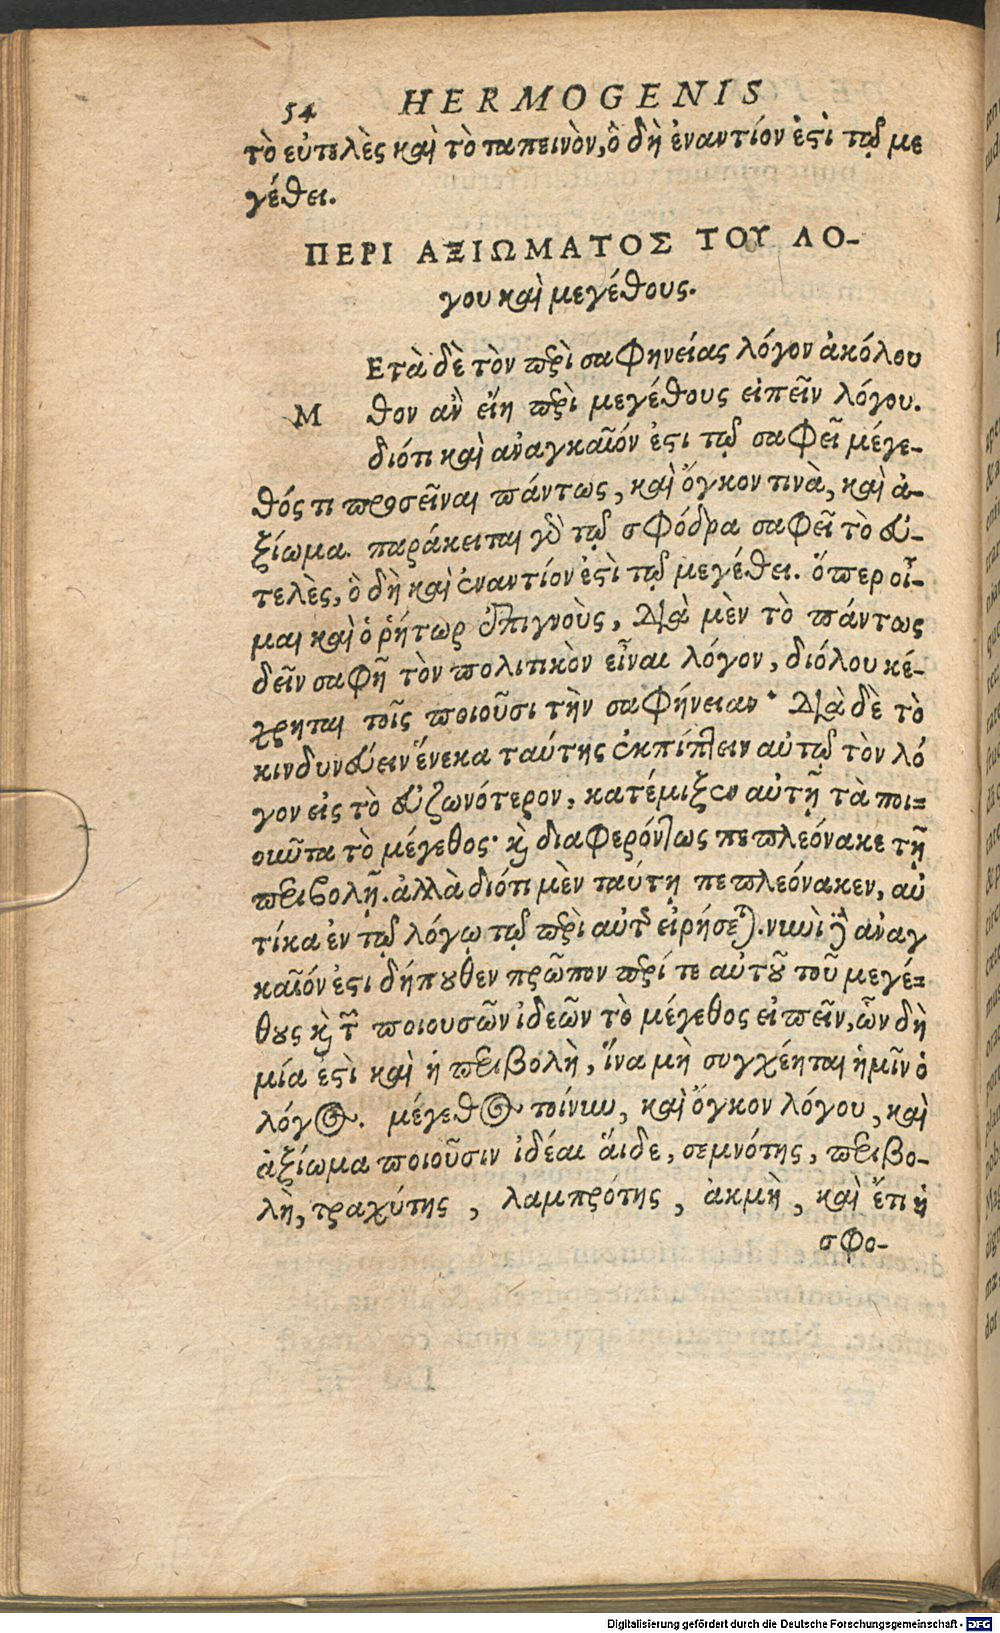 54 HERMOGENIS
τὸ εὐτελὲς καὶ τὸ ταπεινὸν, ὃ δὴ ἐναντίον ἐστὶ τῷ με
γέθει.
ΠΕΡΙ ΑΞΙΩΜΑΤΟΣ ΤΟΥ ΛΟ-
γου καὶ μεγέθους.
Μ Ετὰ δὲ τὸν περὶ σαφηνείας λόγον ἀκόλου
θον ἂν εἴη περὶ μεγέθους εἰπεῖν λόγου.
διότι καὶ ἀναγκαῖόν ἐστι τῷ σαφεῖ μέγε-
θός τι προσεῖναι πάντως, καὶ ὄγκον τινὰ, καὶ ἀ-
ξίωμα. παράκειται γὸ τῷ σφόδρα σαφεῖ τὸ εὐ-
τελὲς, ὃ δὴ καὶ ἐναντίον ἐστὶ τῷ μεγέθει. ὅπερ οἶ-
μαι καὶ ὁ ῥήτωρ ἐπιγνοὺς, διὰ μὲν τὸ πάντως
δεῖν σαφῆ τὸν πολιτικὸν εἶναι λόγον, διόλου κέ-
χρηται τοῖς ποιοῦσι τὴν σαφήνειαν· διὰ δὲ τὸ
κινδυνεύειν ἕνεκα ταύτης ἐκπίπτειν αὐτῷ τὸν λό
γον εἰς τὸ εὐζωνότερον, κατέμιξεν αὐτῇ τὰ ποι-
οῦντα τὸ μέγεθος· καὶ διαφερόντως πεπλεόνακε τῇ
περιβολῇ. ἀλλὰ διότι μὲν ταύτῃ πεπλεόνακεν, αὐ
τίκα ἐν τῷ λόγῳ τῷ περὶ αὐτῆς εἰρήσεται. νυνὶ δὲ ἀναγ
καῖόν ἐστι δήπουθεν πρῶτον περί τε αὐτοῦ τοῦ μεγέ-
θους καὶ τῶν ποιουσῶν ἰδεῶν τὸ μέγεθος εἰπεῖν, ὧν δὴ
μία ἐστὶ καὶ ἡ περιβολὴ, ἵνα μὴ συγχέηται ἡμῖν ὁ
λόγος. μέγεθος τοίνυν, καὶ ὄγκον λόγου, καὶ
ἀξίωμα ποιοῦσιν ἰδέαι ἅιδε, σεμνότης, περιβο-
λὴ, τραχύτης, λαμπρότης, ἀκμὴ, καὶ ἔτι ἡ
σφο-
Digitalisierung gefördert durch die Deutsche Forschungsgemeinschaft - DFG